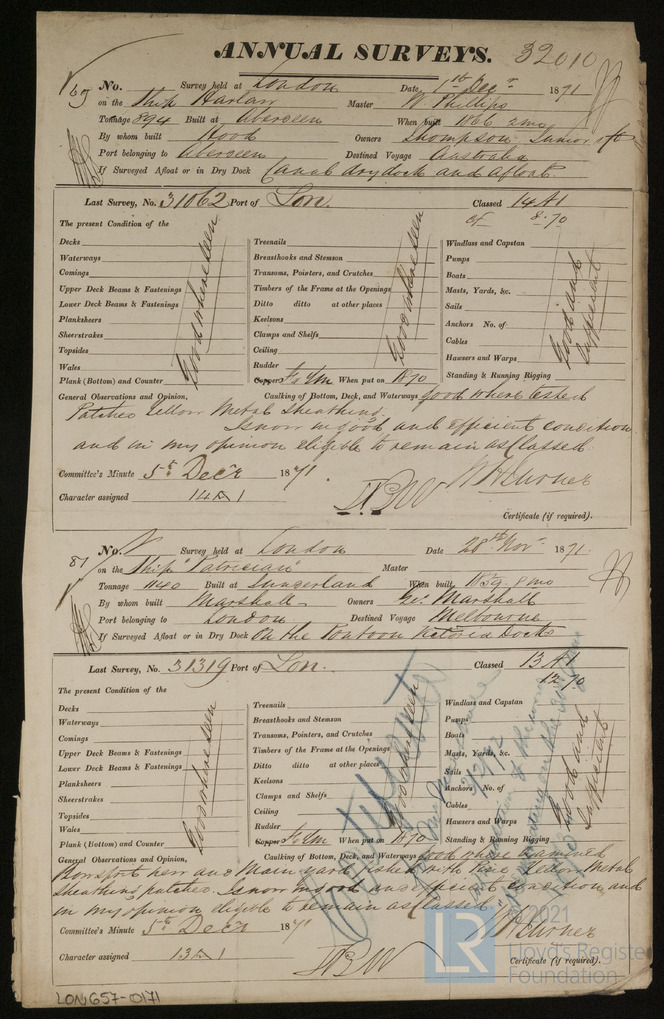 ANNUAL SURVEYS. 32010
69 No. Survey held at London Date 1st Decr 1871
on the Ship Harlaw Master W. Phillips
Tonnage 894 Built at Aberdeen When built 1866 2mo
By whom built Hood Owners Thompson, Junior &Co
Port belonging to Aberdeen Destined Voyage Australia
If Surveyed Afloat or in Dry Dock Canal dry dock and afloat.
Last Survey, No. 31062 Port of Lon. Classed 14 A1
8.70
The present Condition of the
Decks Treenails Windlass and Capstan
Waterways Breasthooks and Stemson Pumps
Comings Transoms, Pointers, and Crutches Boats
Upper Deck Beams & Fastenings Timbers of the Frame at the Openings Masts, Yards, &c.
Lower Deck Beams & Fastenings Ditto ditto at other places Sails
Planksheers Keelsons Anchors No. of
Sheerstrakes Clamps and Shelfs Cables
Topsides Ceiling Hawsers and Warps
Wales Rudder Standing & Running Rigging
Good where seen Good where seen Good and Sufficient
Plank (Bottom) and Counter Copper F & YM When put on 1870
General Observations and Opinion, Caulking of Bottom, Deck, and Waterways good where tested
Patches Yellow Metal Sheathing.
Is now in good and efficient condition
and in my opinion eligible to remain as Classed.
Committee's Minute 5th Decr 1871
Character assigned 14 A 1
Certificate (if required).
81 No. Survey held at London Date 28th Novr 1871.
on the Ship "Patrician" Master
Tonnage 1140 Built at Sunderland When built 1859. 8 mo
By whom built Marshall Owners Geo. Marshall
Port belonging to London Destined Voyage Melbourne
If Surveyed Afloat or in Dry Dock On the Pontoon Victoria Docks
Last Survey, No. 31319 Port of Lon. Classed 13 A1
12.70
The present Condition of the
Decks Treenails Windlass and Capstan
Waterways Breasthooks and Stemson Pumps
Comings Transoms, Pointers, and Crutches Boats
Upper Deck Beams & Fastenings Timbers of the Frame at the Openings Masts, Yards, &c.
Lower Deck Beams & Fastenings Ditto ditto at other places Sails
Planksheers Keelsons Anchors No. of
Sheerstrakes Clamps and Shelfs Cables
Topsides Ceiling Hawsers and Warps
Wales Rudder Standing & Running Rigging
Good where seen Good where seen Good and Sufficient
Plank (Bottom) and Counter Copper F & YM When put on 1870
General Observations and Opinion, Caulking of Bottom, Deck, and Waterways good where examined
and Main yard fished with Yellow Metal
Sheathing patches. Is now in good and efficient condition and
in my opinion eligible to remain as Classed.
Committee's Minute 5th Decr 1871
Character assigned 13 A 1
Certificate (if required).
LR
© 2021
Lloyd's Register
Foundation
LON657-0171